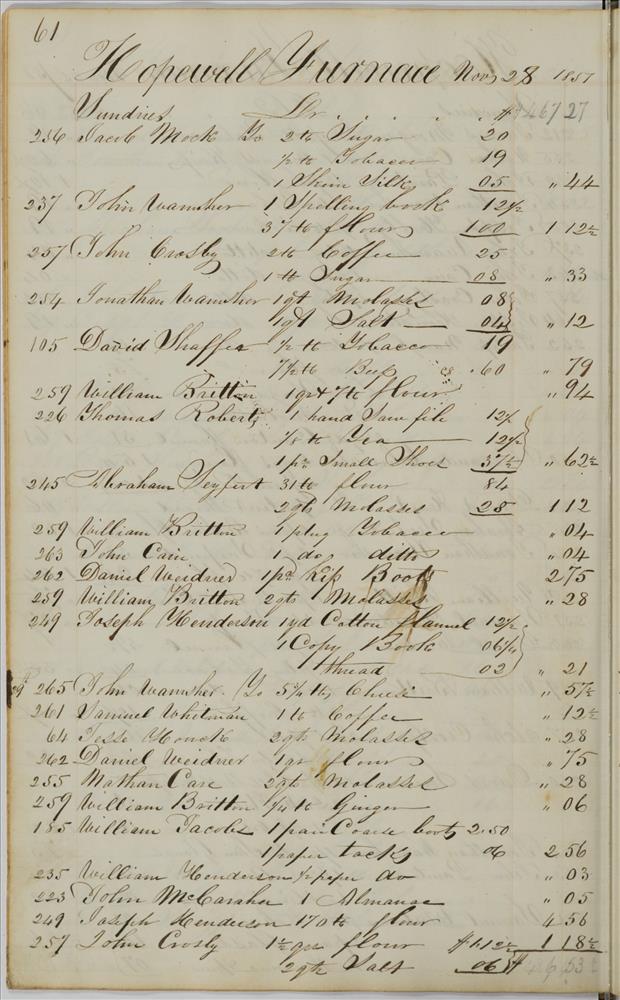 61
Hopewell Furnace Nov 28 1857
Sundries Dr. . . . . $ 467 27
256 Jacob Mock To 2 lb Sugar 20
½ lb Tobacco 19
1 Skein Silk 05 " 44
237 John Wamsher 1 Spelling book 12½
lb flour 100 1 12½
257 John Crosby 2 lb Coffee 25
1 lb Sugar 08 " 33
254 Jonathan Wamsher 1 qt Molasses 08
1 qt Salt 04 " 12
105 David Shaffer ½ lb Tobacco 19
7½ lb Beef c8 .60 " 79
259 William Britton 1 qr & 7 lb flour " 94
226 Thomas Roberts 1 hand Saw file 12½
⅛ lb Tea 12½
1 pr Small Shoes 37½ " 62½
245 Abraham Seyfert 31 lb flour 84
2 qts Molasses 28 1 12
259 William Britton 1 plug Tobacco " 04
263 John Cain 1 do ditto " 04
262 Daniel Weidner 1 pr Kip Boots 2 75
259 William Britton 2 qts Molasses " 28
249 Joseph Henderson 1 yd Cotton flannel 12½
1 Copy Book 06¼
thread 02 " 21
265 John Wamsher To 5¼ lb Cheese " 57½
261 Samuel Whitman 1 lb Coffee " 12½
64 Jesse Houck 2 qts Molasses " 28
262 Daniel Weidner 1 qr flour " 75
255 Nathan Care 2 qts Molasses " 28
259 William Britton ¼ lb Ginger " 06
185 William Jacobs 1 pair Coarse boots 2.50
1 paper tacks 06 2 56
235 William Henderson ½ paper do " 03
223 John 1 Almanac " 05
249 Joseph Henderson 170 lb flour 4 56
257 John Crosby 1½ qrs flour $1.12½ 1 18½
2 qts Salt 06 $